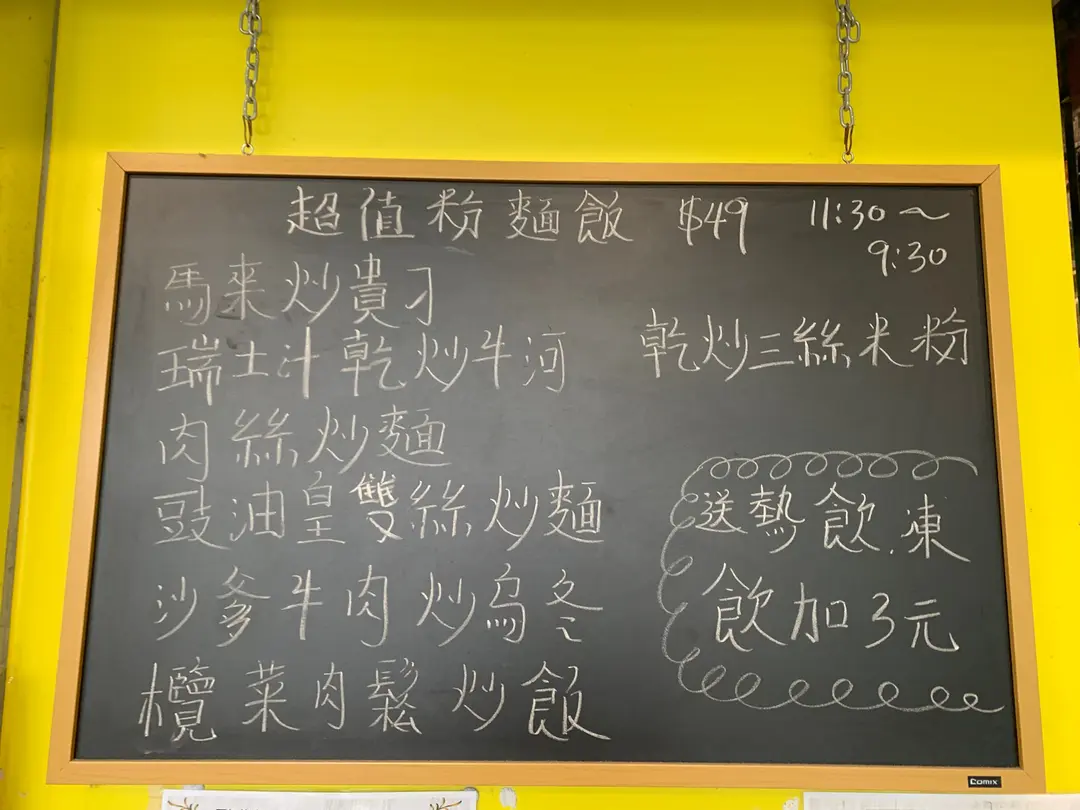 超值粉麵飯 $49 11:30~
9:30
馬來炒貴刁
瑞士汁乾炒牛河
乾炒三絲米粉
肉絲炒麵
豉油皇雙絲炒麵
沙爹牛肉炒烏冬
欖菜肉鬆炒飯
送熱飲.凍
飲加3元
COMIX